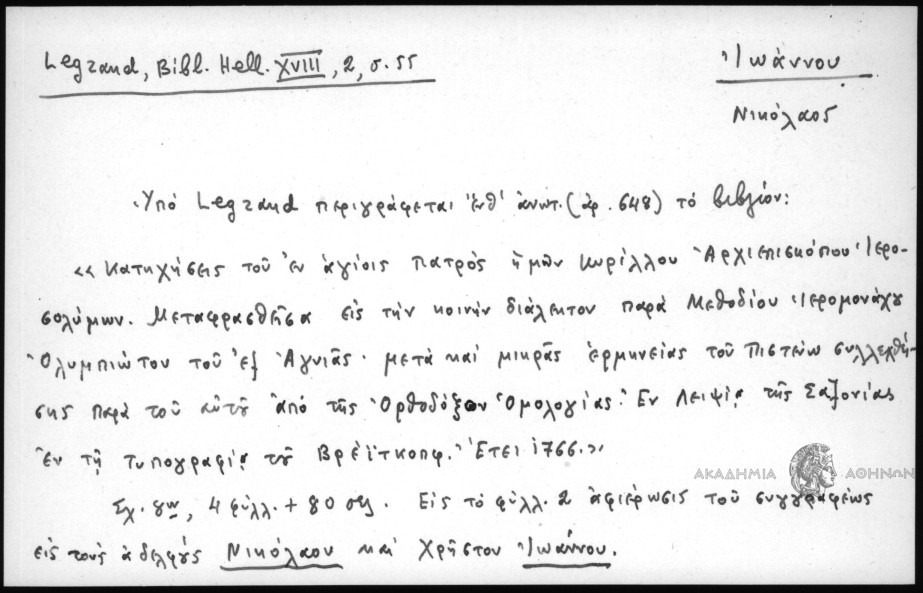 Legrand, Bibl. Hell. XVIII, 2, σ. 55
Ἰωάννου
Νικόλαος
Ὑπό Legrand περιγράφεται ἐνθ' ἀνωτ. (ἀρ. 648) τό βιβλίον:
«Κατηχήσεις τοῦ ἐν ἁγίοις Πατρός ἡμῶν Κυρίλλου Ἀρχιεπισκόπου Ἱερο-
σολύμων. Μεταφρασθεῖσα εἰς τήν κοινήν διάλεκτον παρά Μεθοδίου Ἱερομονάχου
Ὀλυμπιώτου τοῦ ἐξ Ἁγνιᾶς· μετά καί μικρᾶς ἑρμηνείας τοῦ Πιστεύω συλλεχθεί-
σης παρά τοῦ αὐτοῦ ἀπό τῆς Ὀρθοδόξου Ὁμολογίας. Ἐν Λειψίᾳ τῆς Σαξονίας
ἐν τῇ Τυπογραφίᾳ τοῦ Βρέϊτκοπφ. Ἔτει 1766.»
ΑΚΑΔΗΜΙΑ ΑΘΗΝΩΝ
Σχ. 8ον, 4 φύλλ. + 80 σελ. Εἰς τό φύλλ. 2 ἀφιέρωσις τοῦ συγγραφέως
εἰς τούς ἀδελφούς Νικόλαον καί Χρῆστον Ἰωάννου.